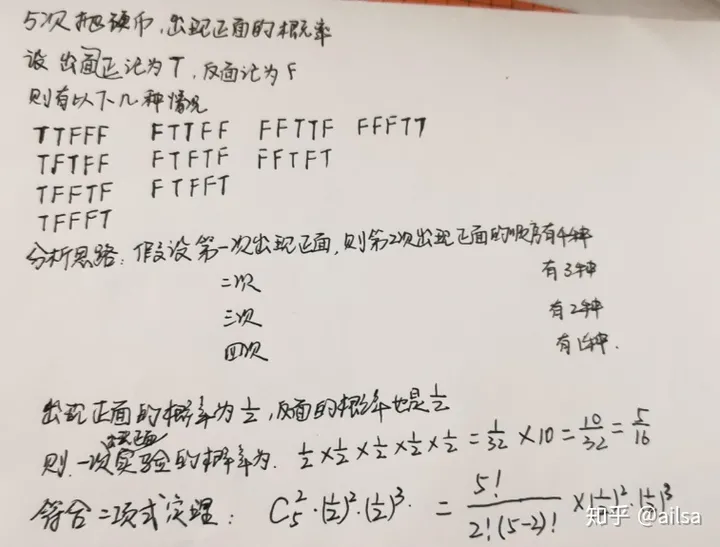 5次抛硬币,出现正面的概率
设出面正记为T,反面记为F
则有以下几种情况
TTFFF FTTFF FFTTF FFFTT
TFTFF FTFTF FFTFT
TFFTF FTFFT
TFFFT
分析思路:假设第一次出现正面,则第2次出现正面的顺序有4种
二次 有3种
三次 有2种
四次 有1种.
出现正面的概率为1/2,反面的概率也是1/2
则一次实验的概率为. 1/2×1/2×1/2×1/2×1/2=1/32×10=10/32=5/16
符合二项式定理: C₅²·(1/2)²·(1/2)³. = 5!/(2!(5-2)!)×(1/2)²·(1/2)³
知乎 @ailsa